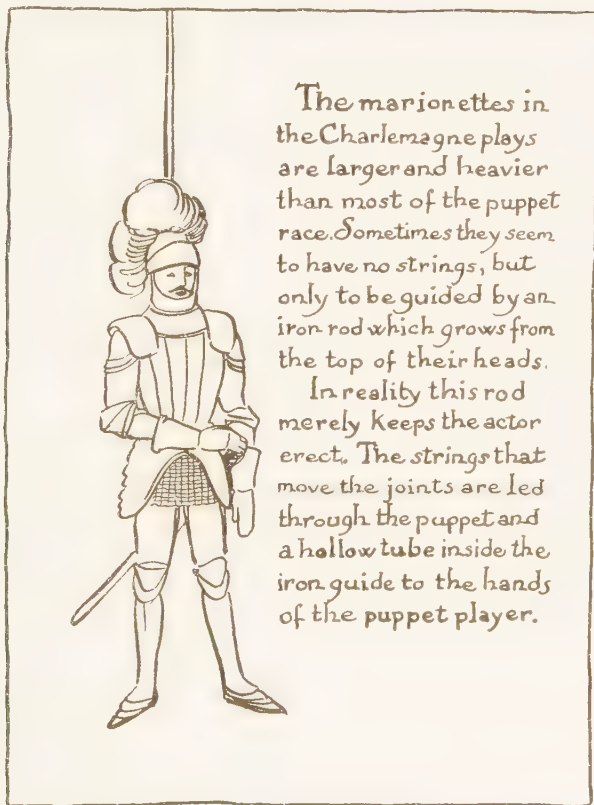 The marionettes in
the Charlemagne plays
are larger and heavier
than most of the puppet
race. Sometimes they seem
to have no strings, but
only to be guided by an
iron rod which grows from
the top of their heads.
In reality this rod
merely keeps the actor
erect. The strings that
move the joints are led
through the puppet and
a hollow tube inside the
iron guide to the hands
of the puppet player.